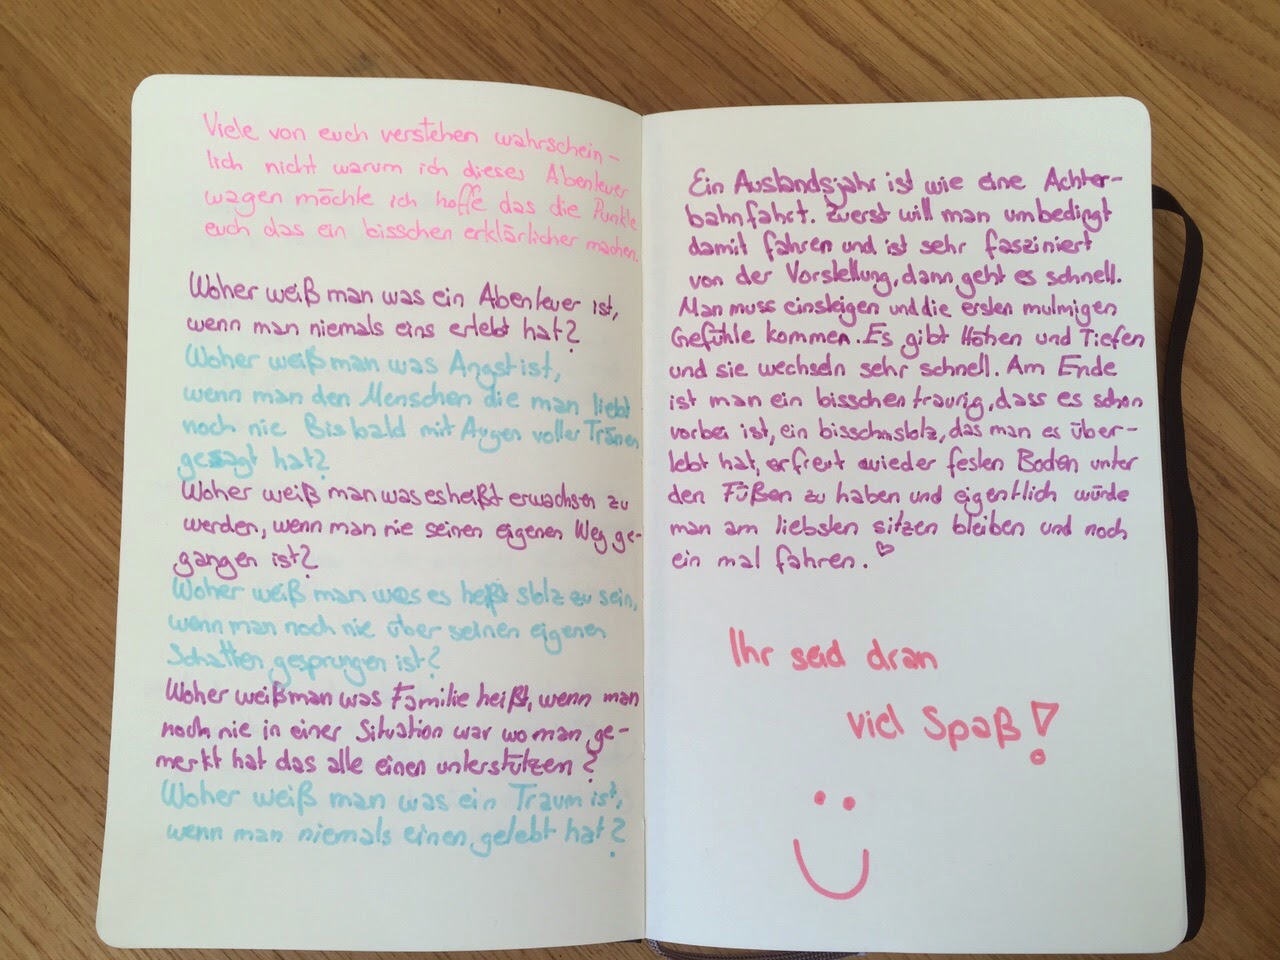 Viele von euch verstehen wahrschein-
lich nicht warum ich dieses Abenteuer
wagen möchte ich hoffe das die Punkte
euch das ein bisschen erklärlicher machen.
Woher weiß man was ein Abenteuer ist,
wenn man niemals eins erlebt hat?
Woher weiß man was Angst ist,
wenn man den Menschen die man liebt
noch nie Bis bald mit Augen voller Tränen
gesagt hat?
Woher weiß man was es heißt erwachsen zu
werden, wenn man nie seinen eigenen Weg ge-
gangen ist?
Woher weiß man was es heißt stolz zu sein,
wenn man noch nie über seinen eigenen
Schatten gesprungen ist?
Woher weiß man was Familie heißt, wenn man
noch nie in einer Situation war wo man ge-
merkt hat das alle einen unterstützen?
Woher weiß man was ein Traum ist,
wenn man niemals einen gelebt hat?
Ein Auslandsjahr ist wie eine Achter-
bahnfahrt. Zuerst will man umbedingt
damit fahren und ist sehr fasziniert
von der Vorstellung, dann geht es schnell.
Man muss einsteigen und die ersten mulmigen
Gefühle kommen. Es gibt Höhen und Tiefen
und sie wechseln sehr schnell. Am Ende
ist man ein bisschen traurig, dass es schon
vorbei ist, ein bisschen stolz, das man es über-
lebt hat, erfreut wieder festen Boden unter
den Füßen zu haben und eigentlich würde
man am liebsten sitzen bleiben und noch
ein mal fahren.
Ihr seid dran
viel Spaß!